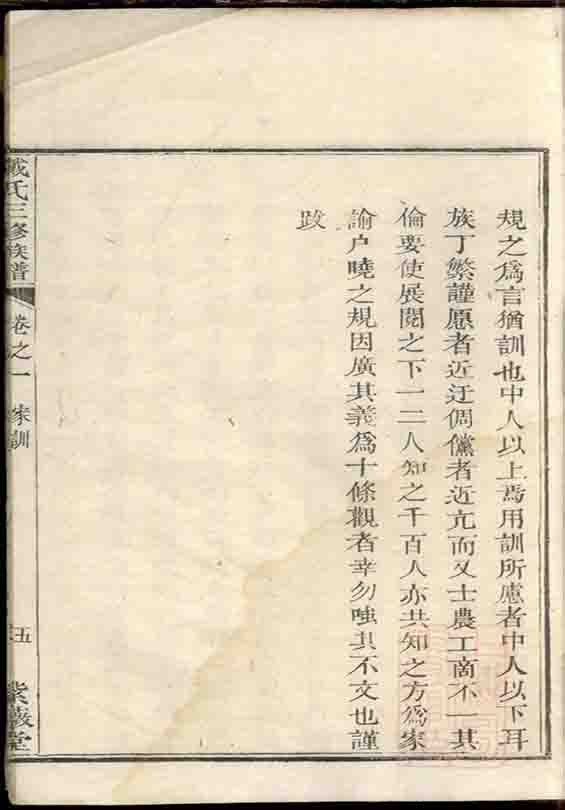 規之爲言猶訓也中人以上焉用訓所慮者中人以下耳
族丁繁謹愿者近迂倜儻者近亢而又士農工商不一其
倫要使展閱之下一二人知之千百人亦共知之方爲家
諭户曉之規因廣其義爲十條觀者幸勿嗤其不文也謹
跋
戴氏三修族譜
卷之一
家訓
五
紫薇堂